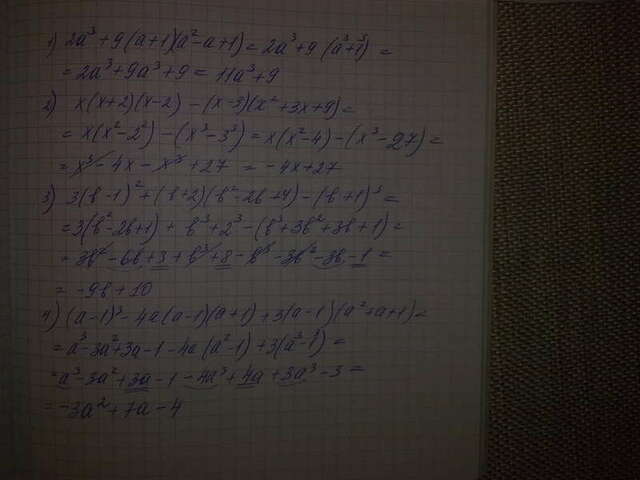 1) 2a³ + 9(a+1)(a²-a+1) = 2a³ + 9(a³+1³) =
= 2a³ + 9a³ + 9 = 11a³ + 9
2) x(x+2)(x-2) - (x-3)(x²+3x+9) =
= x(x²-2²) - (x³-3³) = x(x²-4) - (x³-27) =
= x³ - 4x - x³ + 27 = -4x + 27
3) 3(b-1)² + (b+2)(b²-2b+4) - (b+1)³ =
= 3(b²-2b+1) + b³ + 2³ - (b³+3b²+3b+1) =
= 3b² - 6b + 3 + b³ + 8 - b³ - 3b² - 3b - 1 =
= -9b + 10
4) (a-1)³ - 4a(a-1)(a+1) + 3(a-1)(a²+a+1) =
= a³ - 3a² + 3a - 1 - 4a(a²-1) + 3(a³-1³) =
= a³ - 3a² + 3a - 1 - 4a³ + 4a + 3a³ - 3 =
= -3a² + 7a - 4